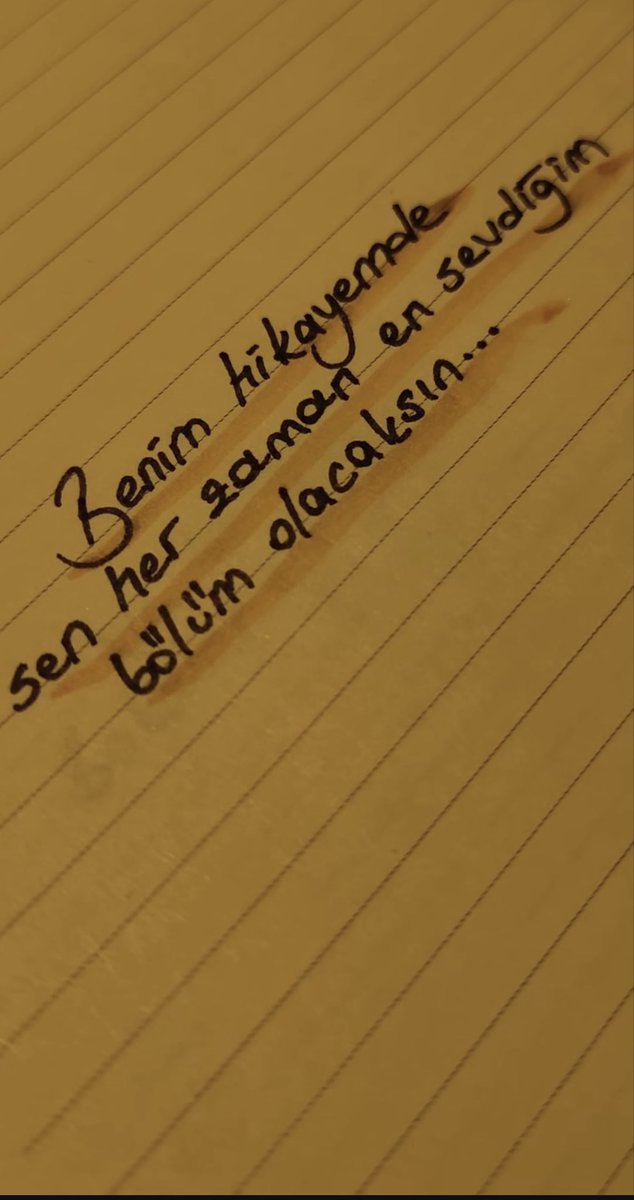 Benim hikayemde
sen her zaman en sevdiğim
bölüm olacaksın...